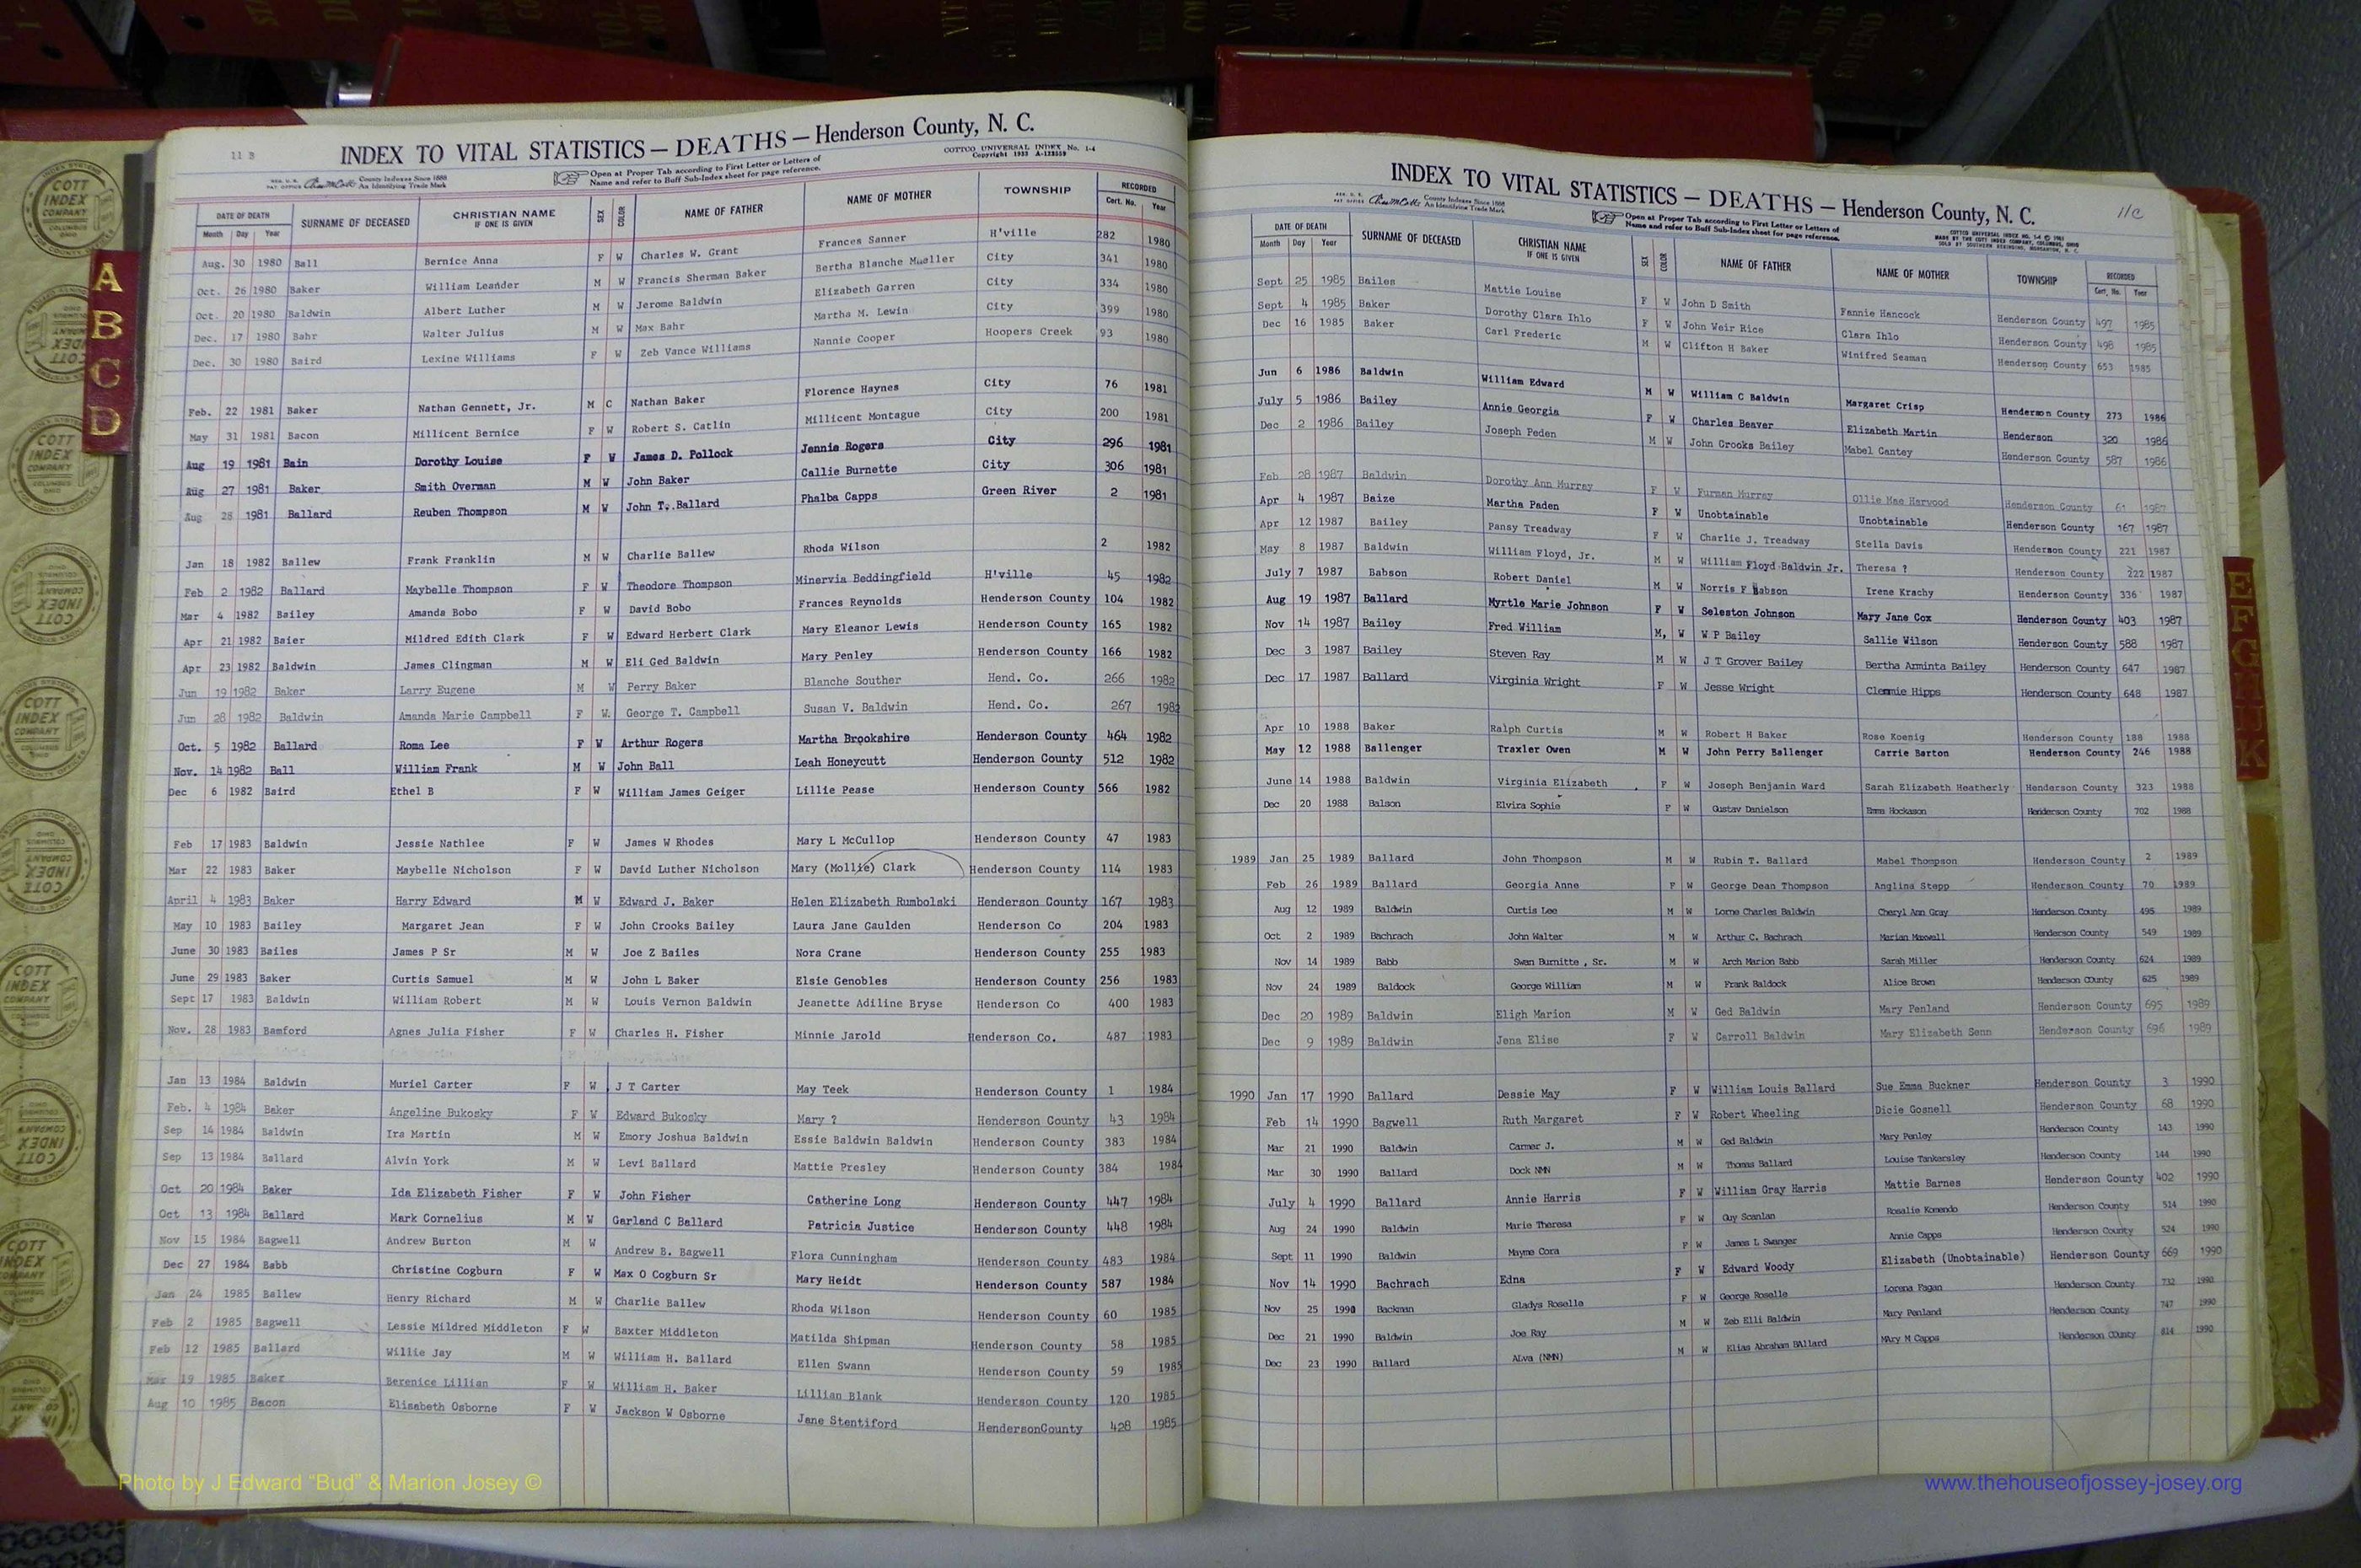 11 B
INDEX TO VITAL STATISTICS — DEATHS — Henderson County, N. C.
COTTCO UNIVERSAL INDEX No. 1-4
Copyright 1935 A-123559
County Indexes Since 1888
An Identifying Trade Mark
Open at Proper Tab according to First Letter or Letters of
Name and refer to Buff Sub-Index sheet for page reference.
DATE OF DEATH SURNAME OF DECEASED CHRISTIAN NAME IF ONE IS GIVEN SEX COLOR NAME OF FATHER NAME OF MOTHER TOWNSHIP RECORDED
Month Day Year Cert. No. Year
Aug. 30 1980 Ball Bernice Anna F W Charles W. Grant Frances Sanner H'ville 282 1980
Oct. 26 1980 Baker William Leander M W Francis Sherman Baker Bertha Blanche Mueller City 341 1980
Oct. 20 1980 Baldwin Albert Luther M W Jerome Baldwin Elizabeth Garren City 334 1980
Dec. 17 1980 Bahr Walter Julius M W Max Bahr Martha M. Lewin City 399 1980
Dec. 30 1980 Baird Lexine Williams F W Zeb Vance Williams Nannie Cooper Hoopers Creek 93 1980
Feb. 22 1981 Baker Nathan Gennett, Jr. M C Nathan Baker Florence Haynes City 76 1981
May 31 1981 Bacon Millicent Bernice F W Robert S. Catlin Millicent Montague City 200 1981
Aug 19 1981 Bain Dorothy Louise F W James D. Pollock Jennie Rogers City 296 1981
Aug 27 1981 Baker Smith Overman M W John Baker Callie Burnette City 306 1981
Aug 28 1981 Ballard Reuben Thompson M W John T. Ballard Phalba Capps Green River 2 1981
Jan 18 1982 Ballew Frank Franklin M W Charlie Ballew Rhoda Wilson 2 1982
Feb 2 1982 Ballard Maybelle Thompson F W Theodore Thompson Minervia Beddingfield H'ville 45 1982
Mar 4 1982 Bailey Amanda Bobo F W David Bobo Frances Reynolds Henderson County 104 1982
Apr 21 1982 Baier Mildred Edith Clark F W Edward Herbert Clark Mary Eleanor Lewis Henderson County 165 1982
Apr 23 1982 Baldwin James Clingman M W Eli Ged Baldwin Mary Penley Henderson County 166 1982
Jun 19 1982 Baker Larry Eugene M W Perry Baker Blanche Souther Hend. Co. 266 1982
Jun 28 1982 Baldwin Amanda Marie Campbell F W. George T. Campbell Susan V. Baldwin Hend. Co. 267 1982
Oct. 5 1982 Ballard Roma Lee F W Arthur Rogers Martha Brookshire Henderson County 464 1982
Nov. 14 1982 Ball William Frank M W John Ball Leah Honeycutt Henderson County 512 1982
Dec 6 1982 Baird Ethel B F W William James Geiger Lillie Pease Henderson County 566 1982
Feb 17 1983 Baldwin Jessie Nathlee F W James W Rhodes Mary L McCullop Henderson County 47 1983
Mar 22 1983 Baker Maybelle Nicholson F W David Luther Nicholson Mary (Mollie) Clark Henderson County 114 1983
April 4 1983 Baker Harry Edward M W Edward J. Baker Helen Elizabeth Rumbolski Henderson County 167 1983
May 10 1983 Bailey Margaret Jean F W John Crooks Bailey Laura Jane Gaulden Henderson Co 204 1983
June 30 1983 Bailes James P Sr M W Joe Z Bailes Nora Crane Henderson County 255 1983
June 29 1983 Baker Curtis Samuel M W John L Baker Elsie Genobles Henderson County 256 1983
Sept 17 1983 Baldwin William Robert M W Louis Vernon Baldwin Jeanette Adiline Bryse Henderson Co 400 1983
Nov. 28 1983 Bamford Agnes Julia Fisher F W Charles H. Fisher Minnie Jarold Henderson Co. 487 1983
Jan 13 1984 Baldwin Muriel Carter F W J T Carter May Teek Henderson County 1 1984
Feb. 4 1984 Baker Angeline Bukosky F W Edward Bukosky Mary ? Henderson County 43 1984
Sep 14 1984 Baldwin Ira Martin M W Emory Joshua Baldwin Essie Baldwin Baldwin Henderson County 383 1984
Sep 13 1984 Ballard Alvin York M W Levi Ballard Mattie Presley Henderson County 384 1984
Oct 20 1984 Baker Ida Elizabeth Fisher F W John Fisher Catherine Long Henderson County 447 1984
Oct 13 1984 Ballard Mark Cornelius M W Garland C Ballard Patricia Justice Henderson County 448 1984
Nov 15 1984 Bagwell Andrew Burton M W Andrew B. Bagwell Flora Cunningham Henderson County 483 1984
Dec 27 1984 Babb Christine Cogburn F W Max O Cogburn Sr Mary Heidt Henderson County 587 1984
Jan 24 1985 Ballew Henry Richard M W Charlie Ballew Rhoda Wilson Henderson County 60 1985
Feb 2 1985 Bagwell Lessie Mildred Middleton F W Baxter Middleton Matilda Shipman Henderson County 58 1985
Feb 12 1985 Ballard Willie Jay M W William H. Ballard Ellen Swann Henderson County 59 1985
Mar 19 1985 Baker Berenice Lillian F W William H. Baker Lillian Blank Henderson County 120 1985
Aug 10 1985 Bacon Elisabeth Osborne F W Jackson W Osborne Jane Stentiford HendersonCounty 428 1985
11C
INDEX TO VITAL STATISTICS — DEATHS — Henderson County, N. C.
County Indexes Since 1888
An Identifying Trade Mark
Open at Proper Tab according to First Letter or Letters of
Name and refer to Buff Sub-Index sheet for page reference.
DATE OF DEATH SURNAME OF DECEASED CHRISTIAN NAME IF ONE IS GIVEN SEX COLOR NAME OF FATHER NAME OF MOTHER TOWNSHIP RECORDED
Month Day Year Cert. No. Year
Sept 25 1985 Bailes Mattie Louise F W John D Smith Fannie Hancock Henderson County 497 1985
Sept 4 1985 Baker Dorothy Clara Ihlo F W John Weir Rice Clara Ihlo Henderson County 498 1985
Dec 16 1985 Baker Carl Frederic M W Clifton H Baker Winifred Seaman Henderson County 653 1985
Jun 6 1986 Baldwin William Edward M W William C Baldwin Margaret Crisp Henderson County 273 1986
July 5 1986 Bailey Annie Georgia F W Charles Beaver Elizabeth Martin Henderson 320 1986
Dec 2 1986 Bailey Joseph Peden M W John Crooks Bailey Mabel Cantey Henderson County 587 1986
Feb 28 1987 Baldwin Dorothy Ann Murray F W Furman Murray Ollie Mae Harwood Henderson County 61 1987
Apr 4 1987 Baize Martha Paden F W Unobtainable Unobtainable Henderson County 167 1987
Apr 12 1987 Bailey Pansy Treadway F W Charlie J. Treadway Stella Davis Henderson County 221 1987
May 8 1987 Baldwin William Floyd, Jr. M W William Floyd Baldwin Jr. Theresa ? Henderson County 222 1987
July 7 1987 Babson Robert Daniel M W Norris F Babson Irene Krachy Henderson County 336 1987
Aug 19 1987 Ballard Myrtle Marie Johnson F W Seleston Johnson Mary Jane Cox Henderson County 403 1987
Nov 14 1987 Bailey Fred William M, W W P Bailey Sallie Wilson Henderson County 588 1987
Dec 3 1987 Bailey Steven Ray M W J T Grover Bailey Bertha Arminta Bailey Henderson County 647 1987
Dec 17 1987 Ballard Virginia Wright F W Jesse Wright Clemmie Hipps Henderson County 648 1987
Apr 10 1988 Baker Ralph Curtis M W Robert H Baker Rose Koenig Henderson County 188 1988
May 12 1988 Ballenger Traxler Owen M W John Perry Ballenger Carrie Barton Henderson County 246 1988
June 14 1988 Baldwin Virginia Elizabeth F W Joseph Benjamin Ward Sarah Elizabeth Heatherly Henderson County 323 1988
Dec 20 1988 Balson Elvira Sophie F W Gustav Danielson Emma Hockason Henderson County 702 1988
1989 Jan 25 1989 Ballard John Thompson M W Rubin T. Ballard Mabel Thompson Henderson County 2 1989
Feb 26 1989 Ballard Georgia Anne F W George Dean Thompson Anglina Stepp Henderson County 70 1989
Aug 12 1989 Baldwin Curtis Lee M W Lorne Charles Baldwin Cheryl Ann Gray Henderson County 495 1989
Oct 2 1989 Bachrach John Walter M W Arthur C. Bachrach Marian Maxwell Henderson County 549 1989
Nov 14 1989 Babb Swan Burnitte , Sr. M W Arch Marion Babb Sarah Miller Henderson County 624 1989
Nov 24 1989 Baldock George William M W Frank Baldock Alice Brown Henderson COunty 625 1989
Dec 20 1989 Baldwin Eligh Marion M W Ged Baldwin Mary Penland Henderson County 695 1989
Dec 9 1989 Baldwin Jena Elise F W Carroll Baldwin Mary Elizabeth Senn Henderson County 696 1989
1990 Jan 17 1990 Ballard Dessie May F W William Louis Ballard Sue Emma Buckner Henderson County 3 1990
Feb 14 1990 Bagwell Ruth Margaret F W Robert Wheeling Dicie Gosnell Henderson County 68 1990
Mar 21 1990 Baldwin Carmer J. M W Ged Baldwin Mary Penley Henderson County 143 1990
Mar 30 1990 Ballard Dock NMN M W Thomas Ballard Louise Tankersley Henderson County 144 1990
July 4 1990 Ballard Annie Harris F W William Gray Harris Mattie Barnes Henderson County 402 1990
Aug 24 1990 Baldwin Marie Theresa F W Guy Scanlan Rosalie Komendo Henderson County 514 1990
Sept 11 1990 Baldwin Mayme Cora F W James L Swanger Annie Capps Henderson County 524 1990
Nov 14 1990 Bachrach Edna F W Edward Woody Elizabeth (Unobtainable) Henderson County 669 1990
Nov 25 1990 Backman Gladys Roselle F W George Roselle Lorena Fagan Henderson County 732 1990
Dec 21 1990 Baldwin Joe Ray M W Zeb Elli Baldwin Mary Penland Henderson County 747 1990
Dec 23 1990 Ballard ALva (NMN) M W Elias Abraham BAllard MAry M Capps Henderson COunty 814 1990
A
B
C
D
E
F
G
H
IJ
K
COTT INDEX COMPANY
Photo by J Edward “Bud” & Marion Josey ©
www.thehouseofjossey-josey.org